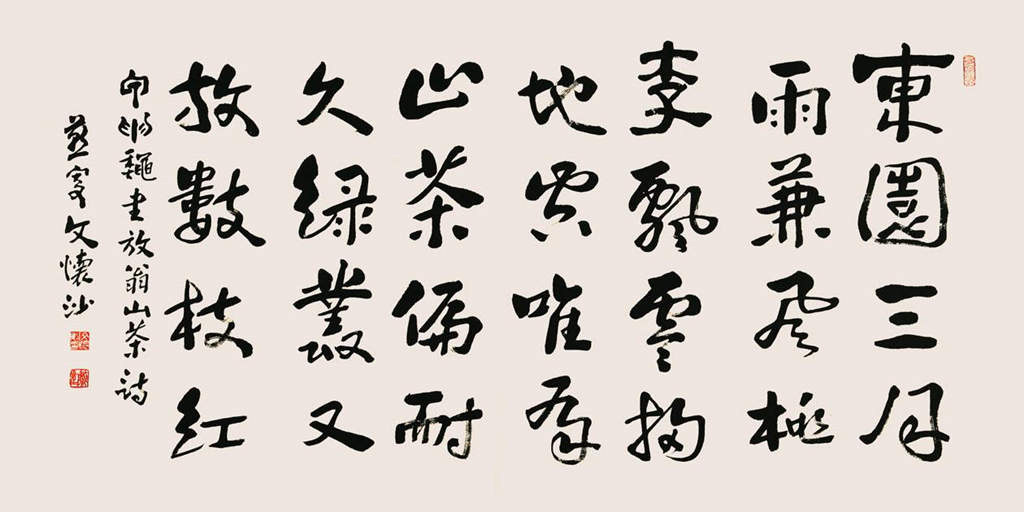 東園三月
雨兼風桃
李飄零掃
地空唯有
山茶偏耐
久緑叢又
放數枝紅
龝書放翁山茶詩
燕叟文懷沙